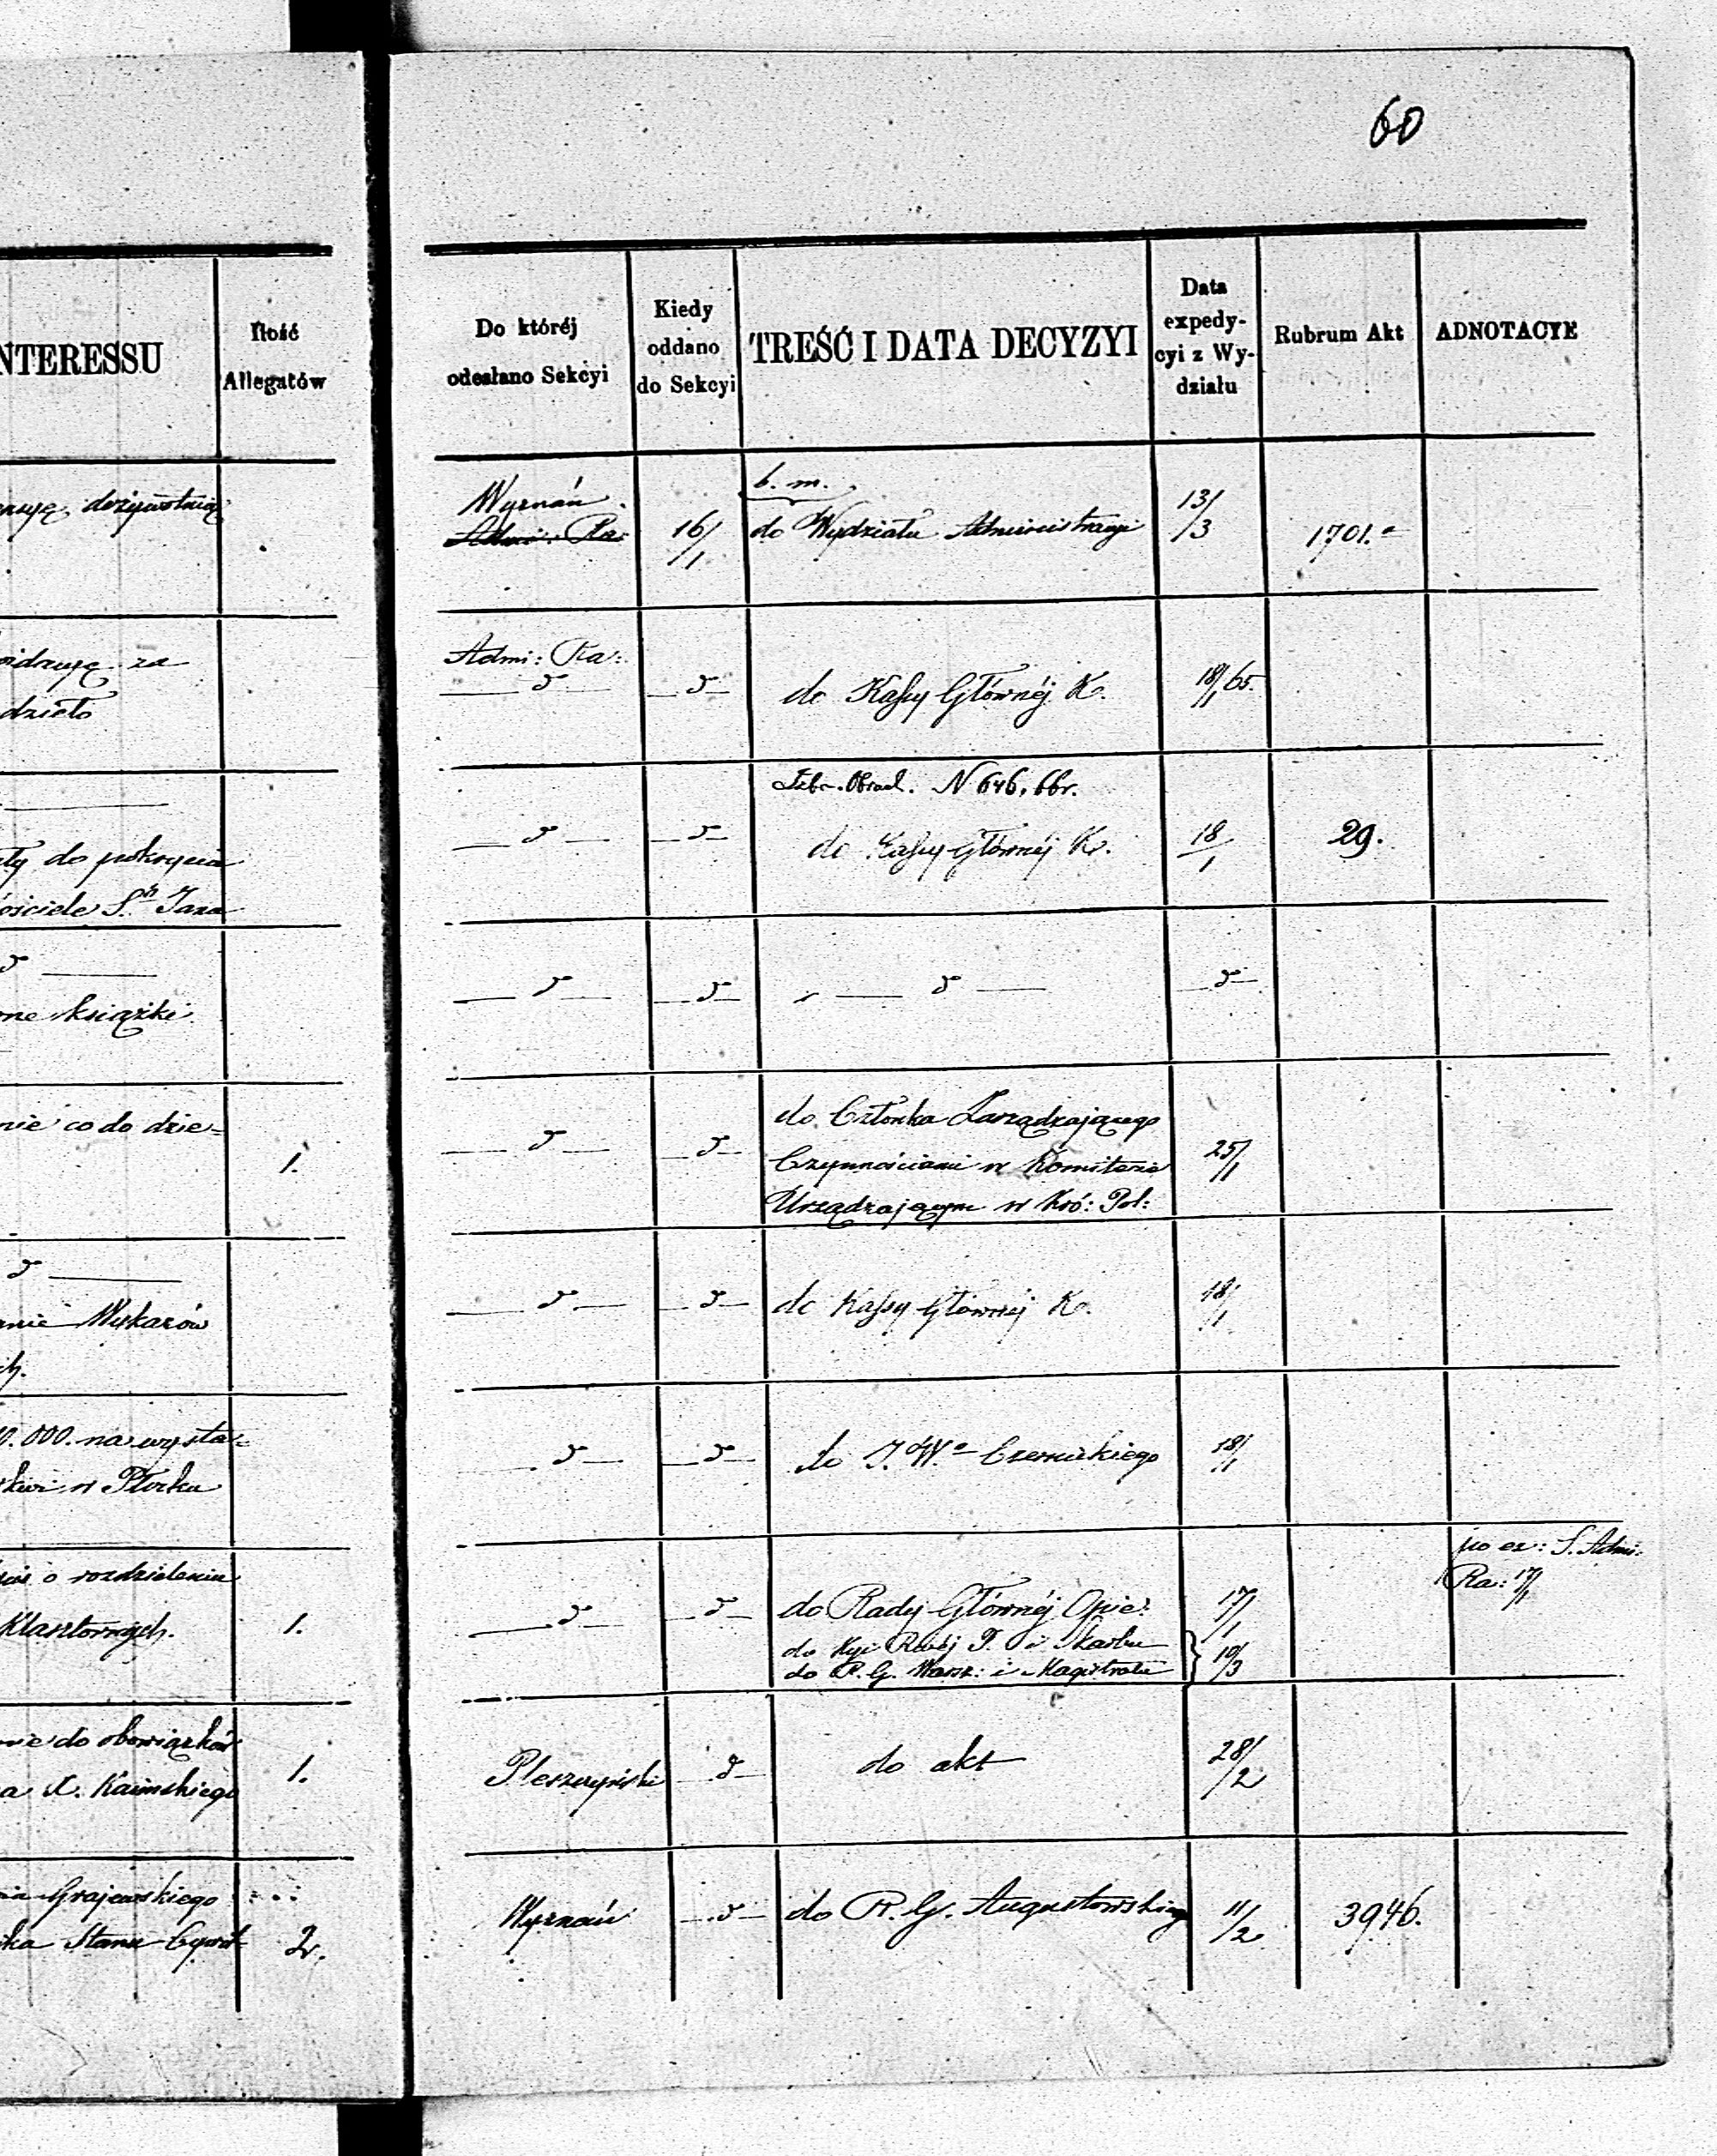 60
NTERESSU
Ilość
Allegatów
dożywotnią
za
dzieło
do pokrycia
ościele S. Jana
książki
nie co do dzie=
1.
Wykazów
000. na wysta=
w Płocku
o rozdzieleniu
Klasztornych.
1.
do obowiązków
X. Kaimskiego
1.
Grajewskiego
Stanu Cywil
2.
Do któréj
odesłano Sekcyi
Kiedy
oddano
do Sekcyi
TREŚĆ I DATA DECYZYI
Data
expedy-
cyi z Wy-
działu
Rubrum Akt
ADNOTACYE
Wyznań
Admi: Ra:
16/1
b. m.
do Wydziału Administracyi
13/3
1701.
Admi: Ra:
do Kassy Głównéj K.
18/1 65.
N 646,
do Kassy Głównéj K.
18/1
29.
do Członka Zarządzającego
Czynnościami w Komitecie
Urządzającym w Kró: Pol:
25/1
do Kassy Głównéj K.
18/1
do J.W. Czernickiego
18/1
do Rady Głównéj Opie:
do Kyi P. i Skarbu
do R. G. Warsz: i Magistratu
17/1
19/3
po ex: S. Admi:
Ra: 17/1
Pleszczyński
do akt
28/2
Wyznań
do R. G. Augustowskiego
11/2
3946.